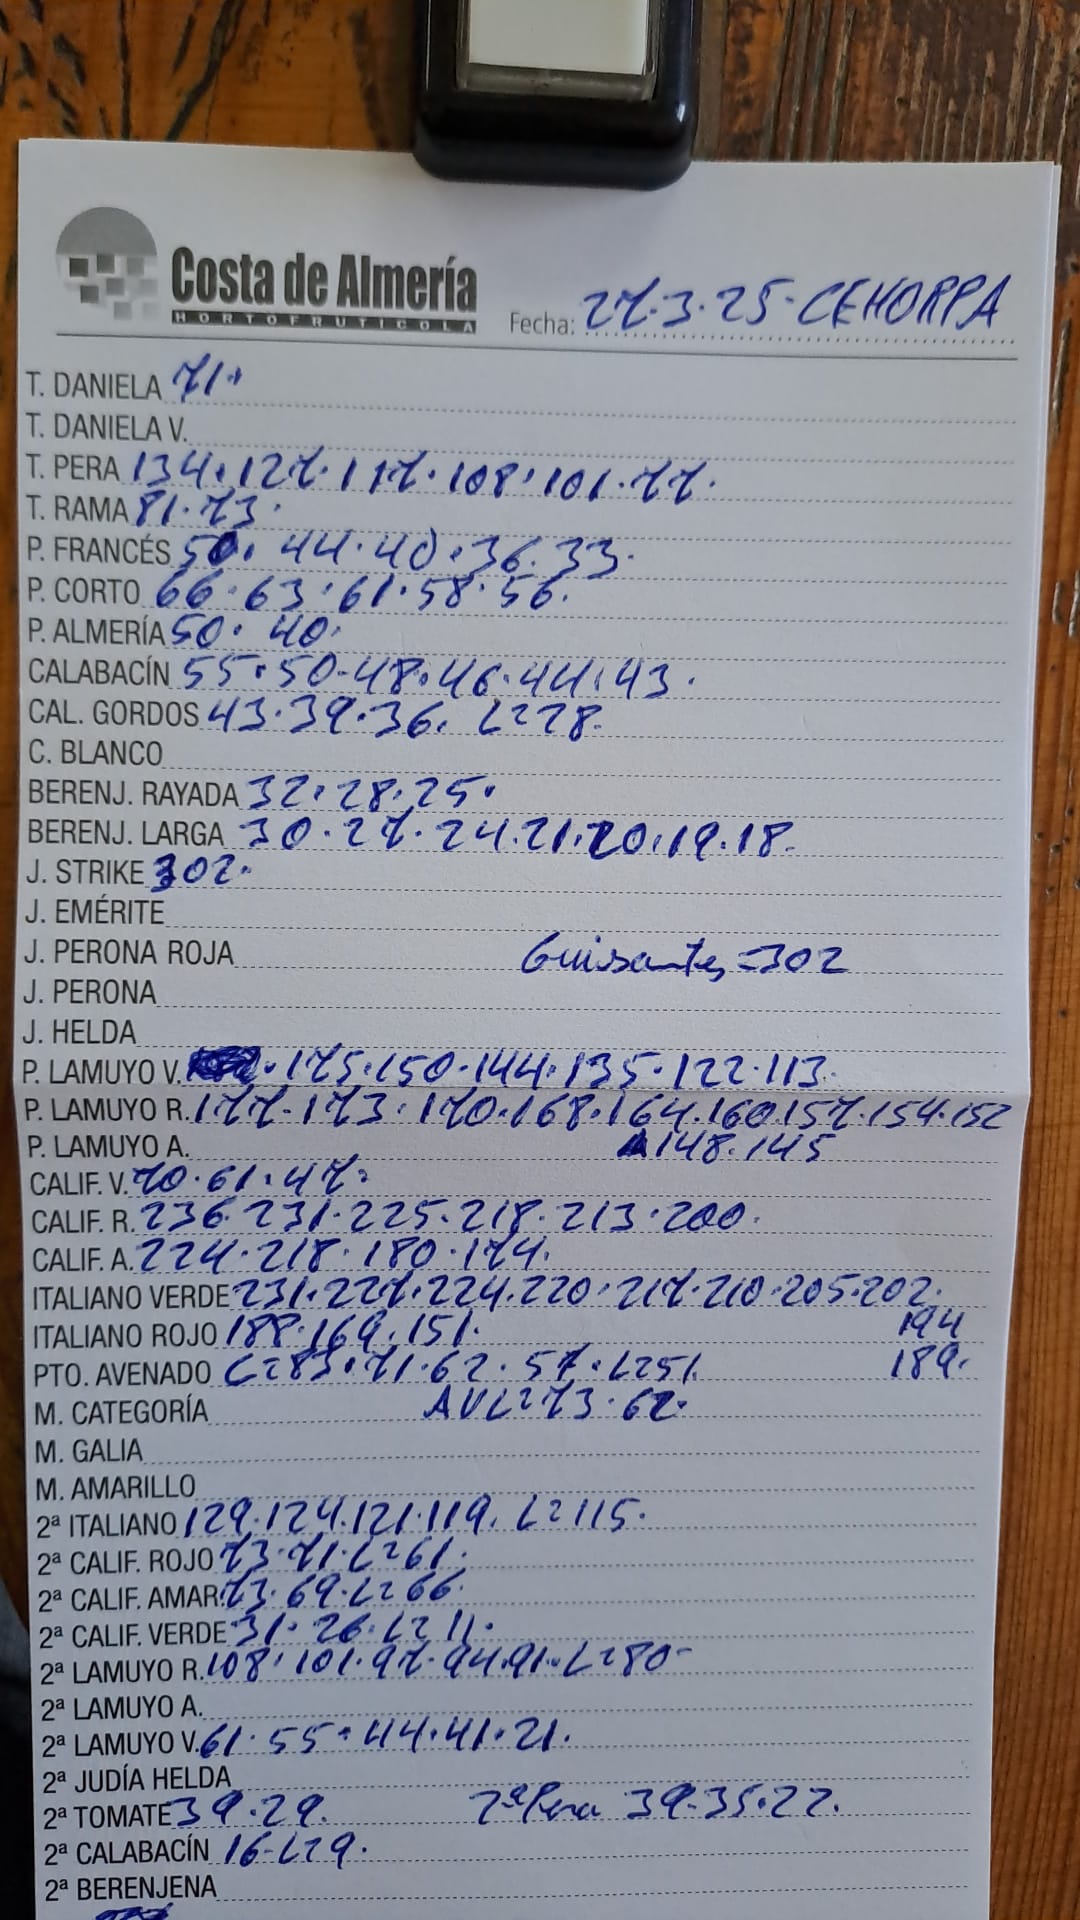 Costa de Almería
HORTOFRUTICOLA
Fecha: 27.3.25-CEHORPA
T. DANIELA 71.
T. DANIELA V.
T. PERA 134.127.117.108.101.77.
T. RAMA 81.73.
P. FRANCÉS 50. 44.40.36.33.
P. CORTO 66.63.61.58.56.
P. ALMERÍA 50. 40.
CALABACÍN 55.50-48.46.44.43.
CAL. GORDOS 43.39.36. L278.
C. BLANCO
BERENJ. RAYADA 32.28.25.
BERENJ. LARGA 30.27.24.21.20.19.18.
J. STRIKE 302.
J. EMÉRITE
J. PERONA ROJA Guisantes=302
J. PERONA
J. HELDA
P. LAMUYO V. .175.150.144.135.122.113.
P. LAMUYO R. 177.173.170.168.164.160.157.154.152
P. LAMUYO A. 148.145
CALIF. V. 70.61.47.
CALIF. R. 236.231.225.218.213.200.
CALIF. A. 224.218.180.174.
ITALIANO VERDE 231.227.224.220.217.210.205.202.
ITALIANO ROJO 188.169.151. 194
PTO. AVENADO L283.71.62.57.L251. 189.
M. CATEGORÍA AVL273.62.
M. GALIA
M. AMARILLO
2ª ITALIANO 129.124.121.119. L2115.
2ª CALIF. ROJO 73.71.L261.
2ª CALIF. AMAR. 73.69.L266.
2ª CALIF. VERDE 31.26.L211.
2ª LAMUYO R. 108.101.97.94.91.L280-
2ª LAMUYO A.
2ª LAMUYO V. 61.55.44.41.21.
2ª JUDÍA HELDA
2ª TOMATE 39.29. 2ª Pera 39.35.22.
2ª CALABACÍN 16-L29.
2ª BERENJENA